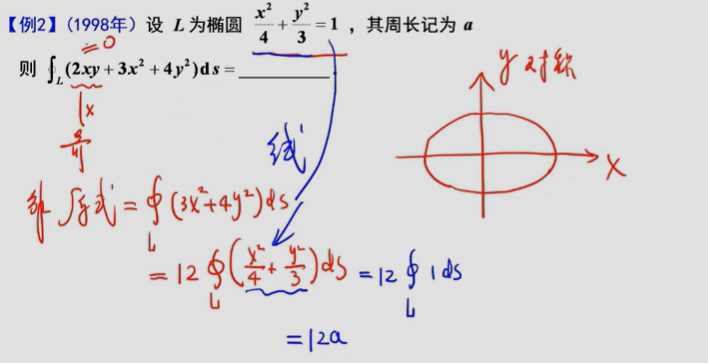 【例2】(1998年) 设 L 为椭圆 x²/4 + y²/3 = 1 ，其周长记为 a
= 0
则 ∮_L (2xy + 3x² + 4y²)ds = ________.
y 对称
x
奇
线
解 原式 = ∮_L (3x²+4y²)ds
x
= 12 ∮_L (x²/4 + y²/3)ds = 12 ∮_L 1ds
= 12a